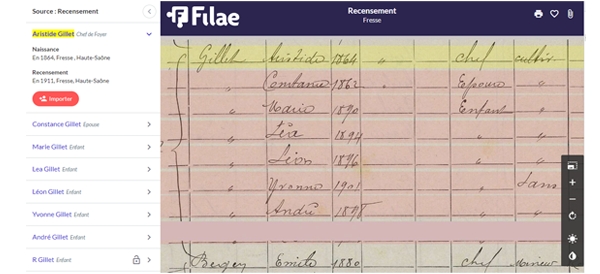 Source : Recensement
Aristide Gillet Chef de Foyer
Naissance
En 1864, Fresse , Haute-Saône
Recensement
En 1911, Fresse , Haute-Saône
Importer
Constance Gillet Epouse
Marie Gillet Enfant
Lea Gillet Enfant
Léon Gillet Enfant
Yvonne Gillet Enfant
André Gillet Enfant
R Gillet Enfant
Filae
Recensement
Fresse
Gillet Aristide 1864 " chef cultiv.
" Constance 1862 " Epouse "
" Marie 1890 Enfant "
" Léa 1894 " "
" Léon 1896 " "
" Yvonne 1901 " Sans
" André 1898 " "
Emile 1880 chef Mineur